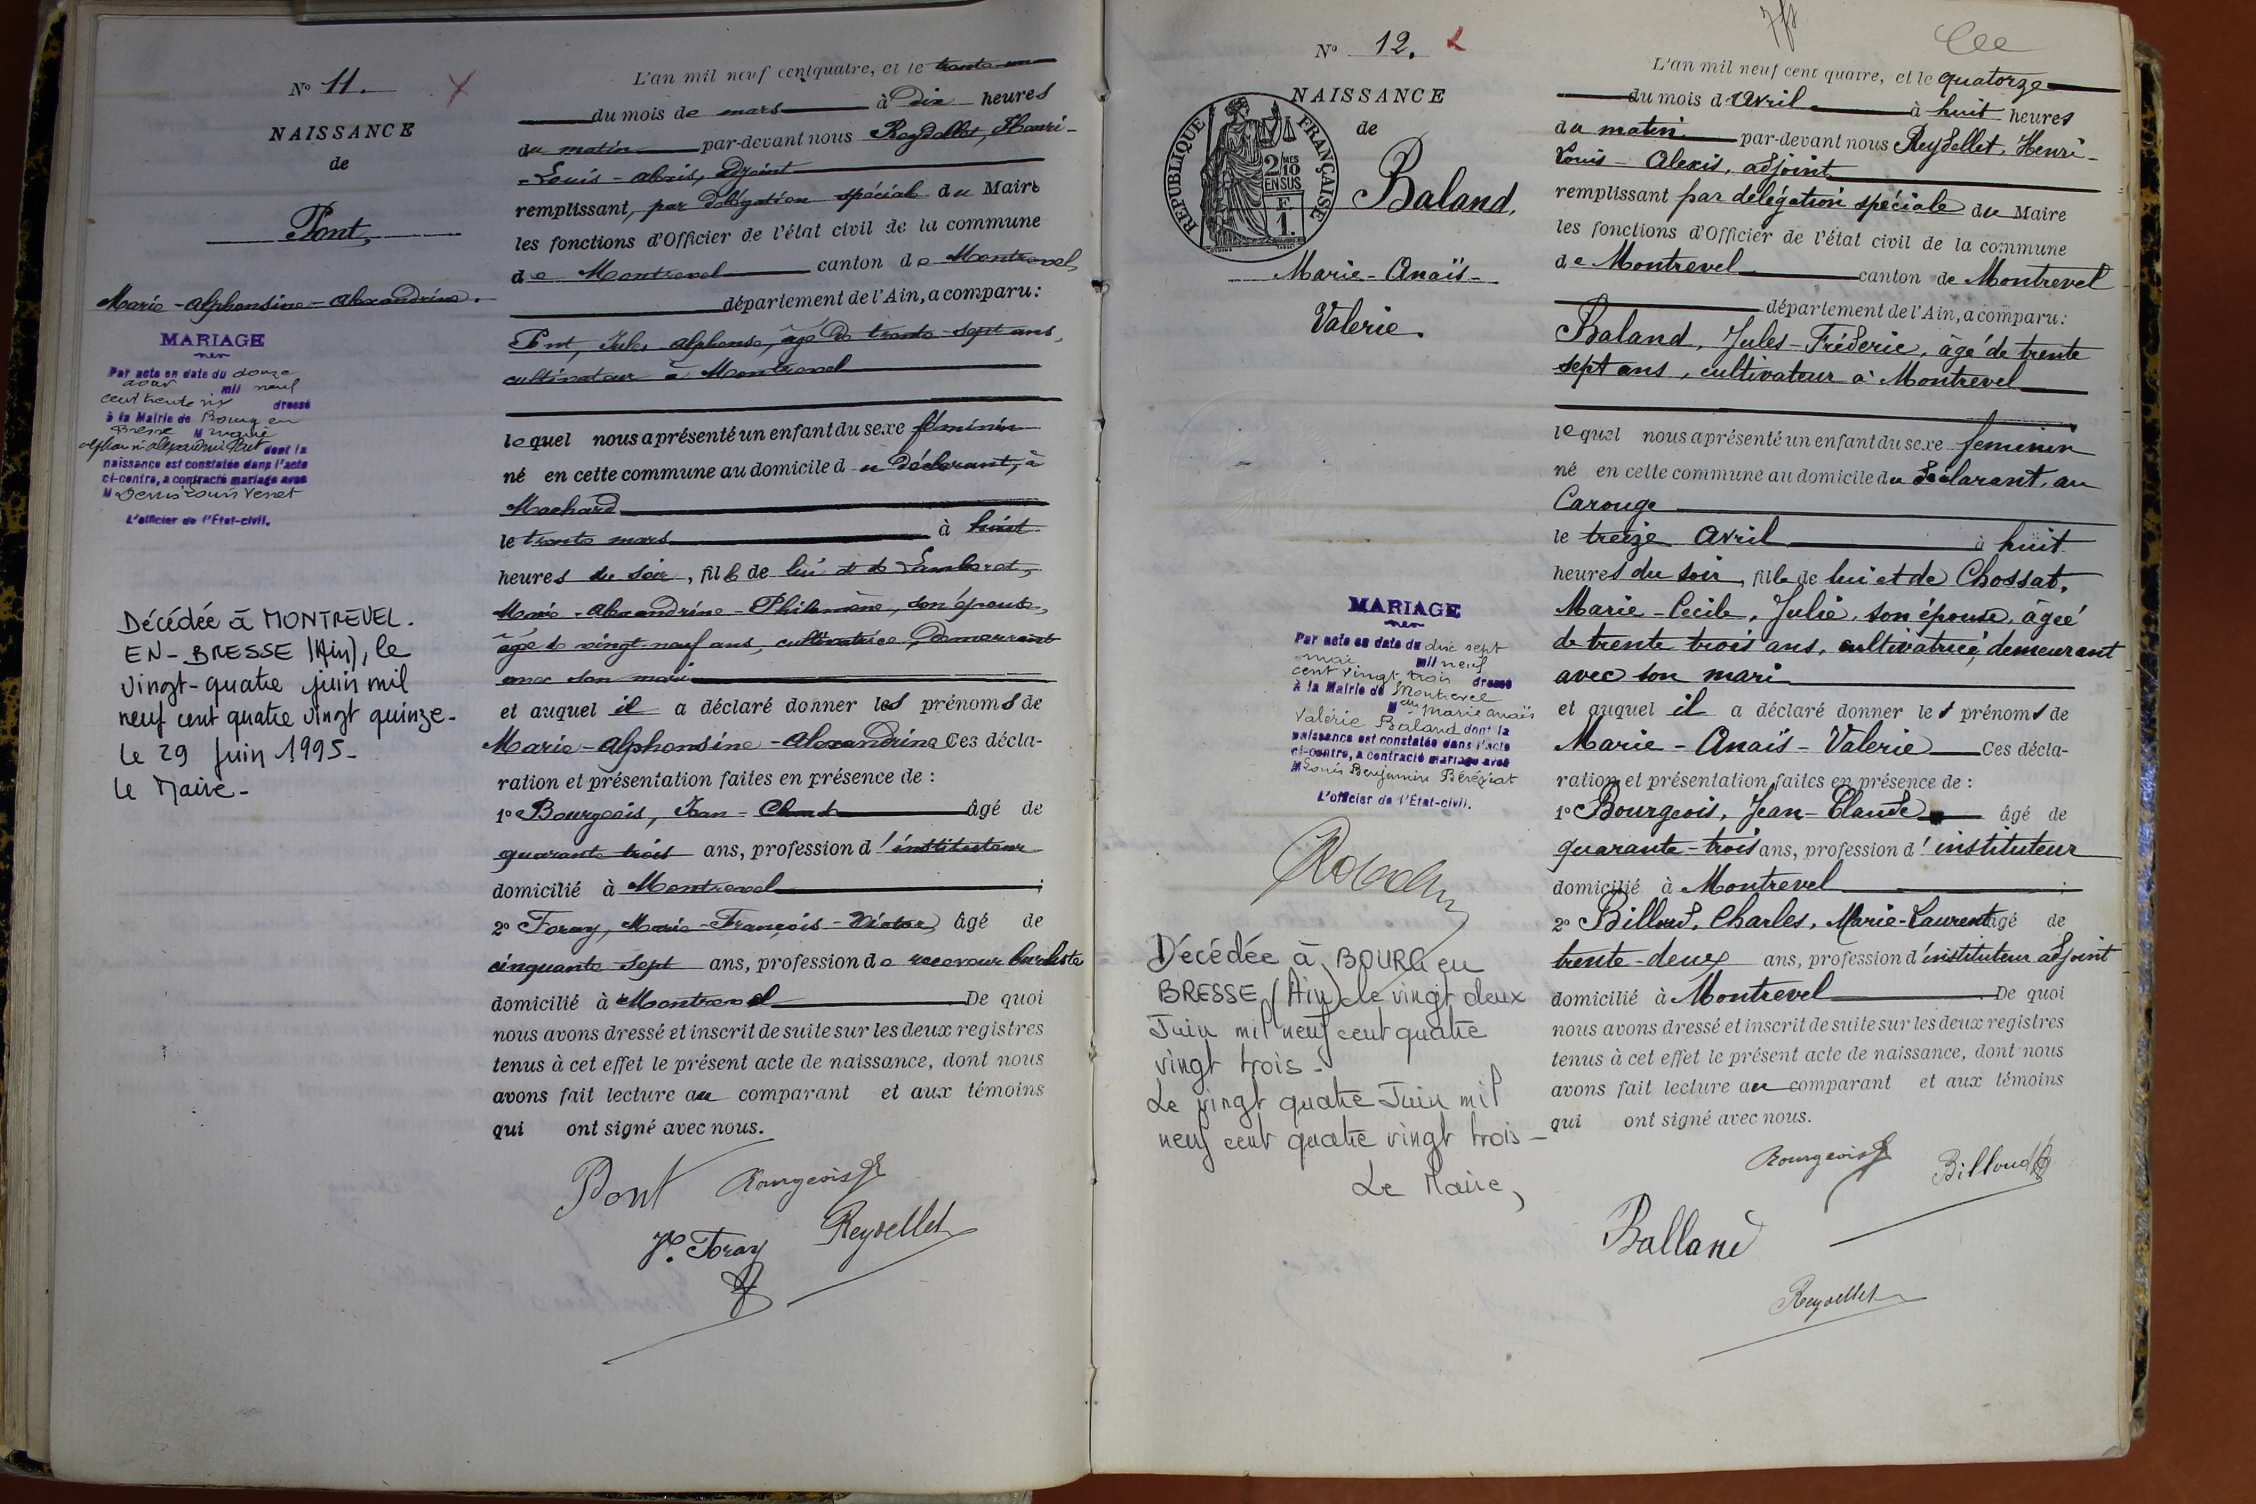 N° 11.
NAISSANCE
de
Pont,
Marie-Alphonsine-Alexandrine.
MARIAGE
Par acte en date du douze
août mil neuf
cent trente six dressé
à la Mairie de Bourg en
Bresse M Marie
Alphonsine Alexandrine Pont dont la
naissance est constatée dans l'acte
ci-contre, a contracté mariage avec
M Denis Louis Venet
L'officier de l'État-civil.
Décédée à MONTREVEL.
EN-BRESSE (Ain), le
vingt-quatre juin mil
neuf cent quatre vingt quinze-
Le 29 Juin 1995-
Le Maire-
L'an mil neuf cent quatre, et le trente-un
du mois de mars à dix heures
du matin par-devant nous Reydellet, Henri-
-Louis-Alexis, adjoint
remplissant, par délégation spéciale du Maire
les fonctions d'Officier de l'état civil de la commune
de Montrevel canton de Montrevel,
département de l'Ain, a comparu:
Pont, Jules Alphonse, âgé de trente-sept ans,
cultivateur à Montrevel
lequel nous a présenté un enfant du sexe féminin
né en cette commune au domicile du déclarant, à
Machard
le trente mars à huit
heures du soir, fille de lui et de Lamberet,
Marie-Alexandrine-Philomène, son épouse,
âgée de vingt-neuf ans, cultivatrice, demeurant
avec son mari
et auquel il a déclaré donner les prénoms de
Marie-Alphonsine-Alexandrine Ces décla-
ration et présentation faites en présence de:
1° Bourgeois, Jean-Claude âgé de
quarante trois ans, profession d'instituteur
domicilié à Montrevel ;
2° Foray, Marie-François-Victor, âgé de
cinquante sept ans, profession de receveur buraliste
domicilié à Montrevel De quoi
nous avons dressé et inscrit de suite sur les deux registres
tenus à cet effet le présent acte de naissance, dont nous
avons fait lecture au comparant et aux témoins
qui ont signé avec nous.
Pont Bourgeois
V. Foray Reydellet
N° 12.
NAISSANCE
de
RÉPUBLIQUE FRANÇAISE
2/10 MES
EN SUS
F.
1.
Baland,
Marie-Anaïs-
Valerie.
MARIAGE
Par acte en date du dix sept
mai mil neuf
cent vingt trois dressé
à la Mairie de Montrevel
Ain
M Marie Anaïs
Valérie Baland dont la
naissance est constatée dans l'acte
ci-contre, a contracté mariage avec
M Louis Benjamin Béréziat
L'officier de l'État-civil.
Décédée à BOURG en
BRESSE (Ain) le vingt deux
Juin mil neuf cent quatre
vingt trois-
Le vingt quatre Juin mil
neuf cent quatre vingt trois-
Le Maire,
L'an mil neuf cent quatre, et le quatorze
du mois d'Avril à huit heures
du matin par-devant nous Reydellet, Henri-
Louis-Alexis, adjoint
remplissant par délégation spéciale du Maire
les fonctions d'Officier de l'état civil de la commune
de Montrevel canton de Montrevel
département de l'Ain, a comparu:
Baland, Jules-Fréderic, âgé de trente
sept ans, cultivateur à Montrevel
lequel nous a présenté un enfant du sexe feminin
né en cette commune au domicile du déclarant, au
Carouge
le treize Avril à huit
heures du soir, fille de lui et de Chossat,
Marie-Cecile, Julie, son épouse, âgée
de trente trois ans, cultivatrice, demeurant
avec son mari
et auquel il a déclaré donner les prénoms de
Marie-Anaïs-Valerie Ces décla-
ration et présentation faites en présence de:
1° Bourgeois, Jean-Claude âgé de
quarante-trois ans, profession d'instituteur
domicilié à Montrevel ;
2° Billoud, Charles, Marie-Laurent âgé de
trente-deux ans, profession d'instituteur adjoint
domicilié à Montrevel De quoi
nous avons dressé et inscrit de suite sur les deux registres
tenus à cet effet le présent acte de naissance, dont nous
avons fait lecture au comparant et aux témoins
qui ont signé avec nous.
Bourgeois Billoud
Balland
Reydellet